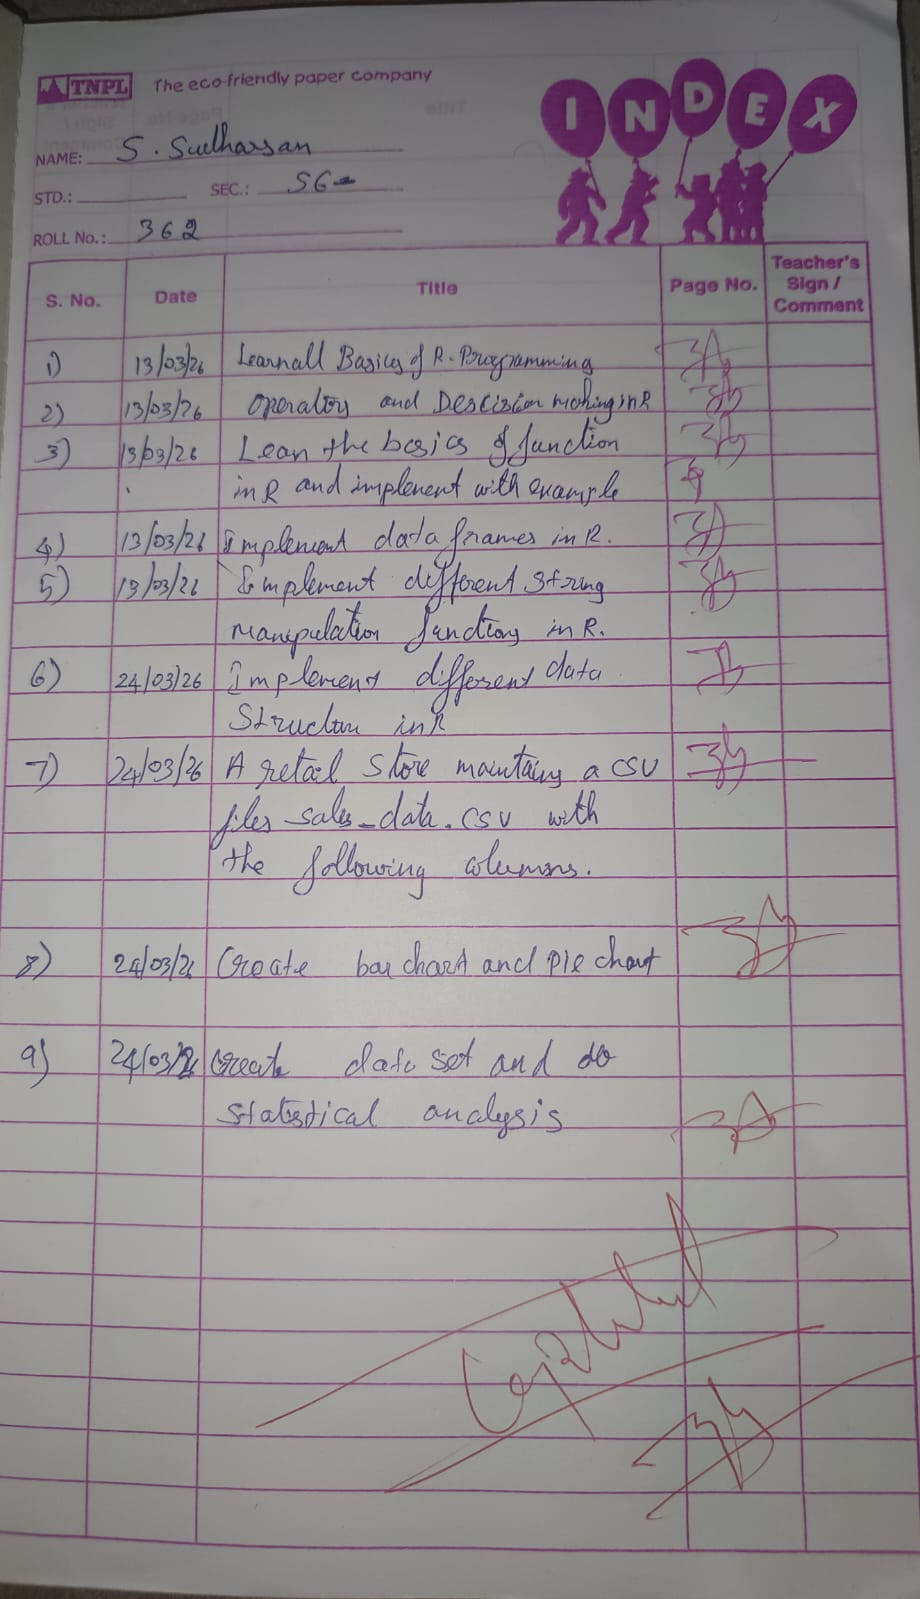 TNPL The eco-friendly paper company
INDEX
NAME: S. Sudharsan
STD.: SEC.: SG
ROLL No.: 362
S. No. Date Title Page No. Teacher's Sign / Comment
1) 13/03/26 Learnall Basics of R. Programming
2) 13/03/26 Operators and Descision making in R
3) 13/03/26 Lean the basics of function
in R and implement with example
4) 13/03/26 Implement data frames in R.
5) 13/03/26 Implement different String
manipulation functions in R.
6) 24/03/26 Implement different data
Structure in R
7) 24/03/26 A retail store maintains a CSV
files sales_data.csv with
the following columns.
8) 24/03/26 Create bar chart and pie chart
9) 24/03/26 Create data set and do
statistical analysis